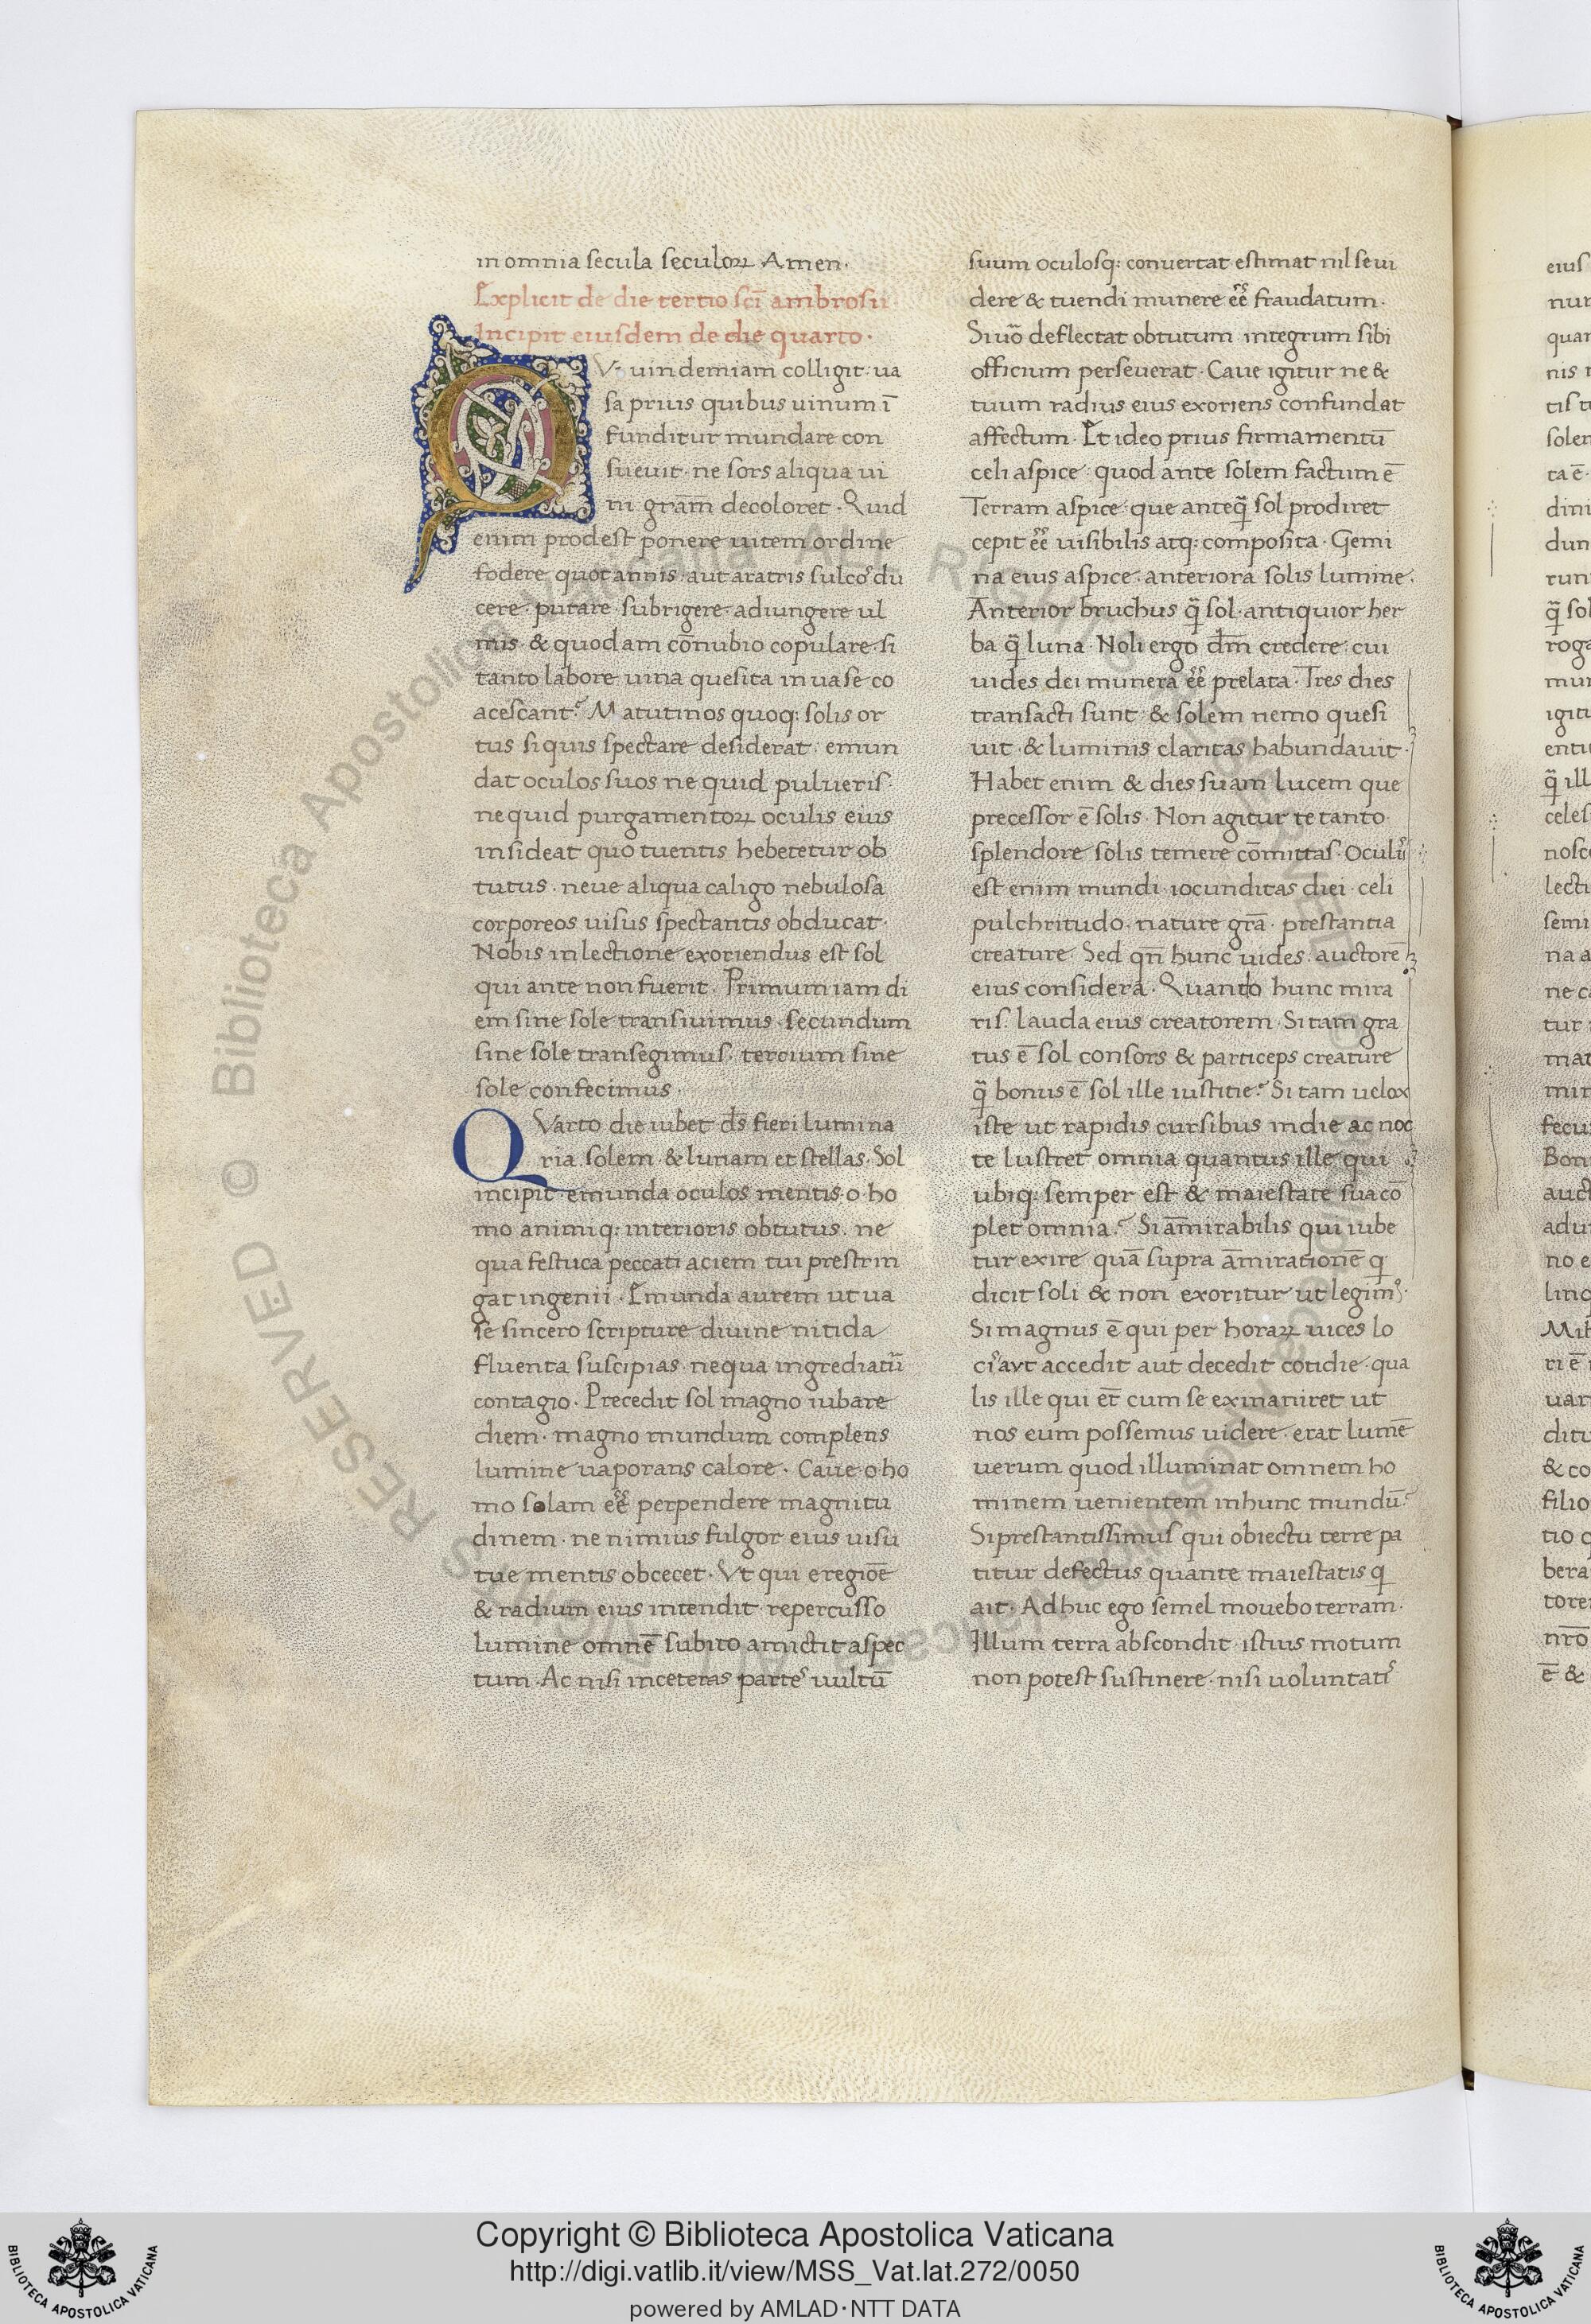 in omnia secula seculoꝝ Amen·
Explicit de die tertio sci̅ ambrosii
Incipit eiusdem de die quarto·
QVi uindemiam colligit· ua
sa prius quibus uinum ı̅
funditur mundare con
sueuit· ne sors aliqua ui
ni gra̅m̅ decoloret· Quid
enim prodest ponere uitem ordine
fodere quot annis· aut aratris sulcoˢ du
cere· putare· subrigere· adiungere ul
mis· & quodam co̅nubio copulare· si
tanto labore uina quesita in uase co
acescant? Matutinos quoq: solis or
tus siquis spectare desiderat: emun
dat oculos suos ne quid pulueris
ne quid purgamentoꝝ oculis eius
insideat quo tuentis hebetetur ob
tutus· neue aliqua caligo nebulosa
corporeos uisus spectantis obducat·
Nobis in lectione exoriendus est sol
qui ante non fuerit. Primum iam di
em sine sole transiuimus· secundum
sine sole transegimus· tercium sine
sole confecimus·
QVarto die iubet d̅s fieri lumina
ria· solem· & lunam et stellas· Sol
incipit· emunda oculos mentis· o ho
mo animiq: interioris obtutus· ne
qua festuca peccati aciem tui prestrin
gat ingenii· Emunda aurem ut ua
se sincero scripture diuine nitida
fluenta suscipias· nequa ingrediatu᷑
contagio· Precedit sol magno iubare
diem· magno mundum complens
lumine uaporans calore· Caue o ho
mo solam ee̅ perpendere magnitu
dinem· ne nimius fulgor eius uisu᷑
tue mentis obcecet· Vt qui e regio̅e
& radium eius intendit· repercusso
lumine omne̅ subito amictit aspec
tum· Ac nisi in ceteras parteˢ uultu̅
suum oculosq: conuertat estimat nil se ui
dere & tuendi munere ee̅ fraudatum·
Siu̅o deflectat obtutum· integrum sibi
officium perseuerat· Caue igitur ne &
tuum radius eius exoriens confundat
affectum· Et ideo prius firmamentu̅
celi aspice· quod ante solem factum e̅
Terram aspice· que anteq̅ sol prodiret
cepit ee̅ uisibilis atq: composita· Gemi
na eius aspice· anteriora solis lumine·
Anterior bruchus q̅ sol· antiquior her
ba q̅ luna· Noli ergo d̅m̅ credere: cui
uides dei munera ee̅ prelata· Tres dies
transacti sunt· & solem nemo quesi
uit· & luminis claritas habundauit·
Habet enim & dies suam lucem que
precessor e̅ solis· Non agitur te tanto
splendore solis temere co̅mittas· Oculuˢ
est enim mundi· iocunditas diei· celi
pulchritudo· nature gr̅a· prestantia
creature· Sed qn̅ hunc uides· auctore̅
eius considera· Quando hunc mira
ris· lauda eius creatorem· Si tam gra
tus e̅ sol consors & particeps creature
q̅ bonus e̅ sol ille iustitie? Si tam uelox
iste ut rapidis cursibus in die ac noc
te lustret omnia quantus ille qui
ubiq: semper est & maiestate sua co̅
plet omnia? Si a̅mirabilis qui iube
tur exire qua̅ supra a̅miratione̅ q
dicit soli & non exoritur ut legimˢ·
Si magnus e̅ qui per horaꝝ uices lo
ciˢ aut accedit aut decedit cotidie· qua
lis ille qui et̅ cum se exinaniret ut
nos eum possemus uidere· erat lume̅
uerum quod illuminat omnem ho
minem uenientem in hunc mundu̅?
Si prestantissimus qui obiectu terre pa
titur defectus quante maiestatis q
ait· Adhuc ego semel mouebo terram·
Illum terra abscondit· istius motum
non potest sustinere· nisi uoluntatiˢ
© Biblioteca Apostolica Vaticana ALL RIGHTS RESERVED
Copyright © Biblioteca Apostolica Vaticana
http://digi.vatlib.it/view/MSS_Vat.lat.272/0050
powered by AMLAD·NTT DATA
BIBLIOTECA APOSTOLICA VATICANA
BIBLIOTECA APOSTOLICA VATICANA